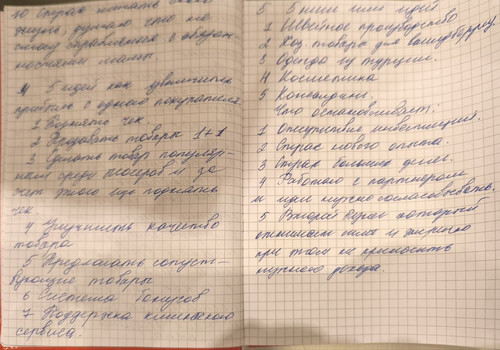 10 Страх начать
жизнь, думаю что не
смогу справляться с обязан.
ностями мамы.
4 5 идей как увеличить
прибыль с одного покупателя.
1 Поднять чек
2 Продавать товары 1+1
3 Сделать товар популяр-
ным среди блогеров и за
счет этого ещё поднять
чек.
4 Улучшить качество
товара
5 Предлагать сопутст-
вующие товары
6 Система бонусов
7 Поддержка клиентского
сервиса.
5 5 ниш или идей
1 Швейное производство
2 Хоз. товары для
3 Одежда из Турции.
4 Косметика
5
Что останавливает:
1 Отсутствие инвестиций.
2 Страх нового опыта.
3 Страх больших денег.
4 Работаю с партнером
и идеи нужно согласовывать.
5 Второй который
отнимает силы и энергию
при этом не приносит
нужного дохода.